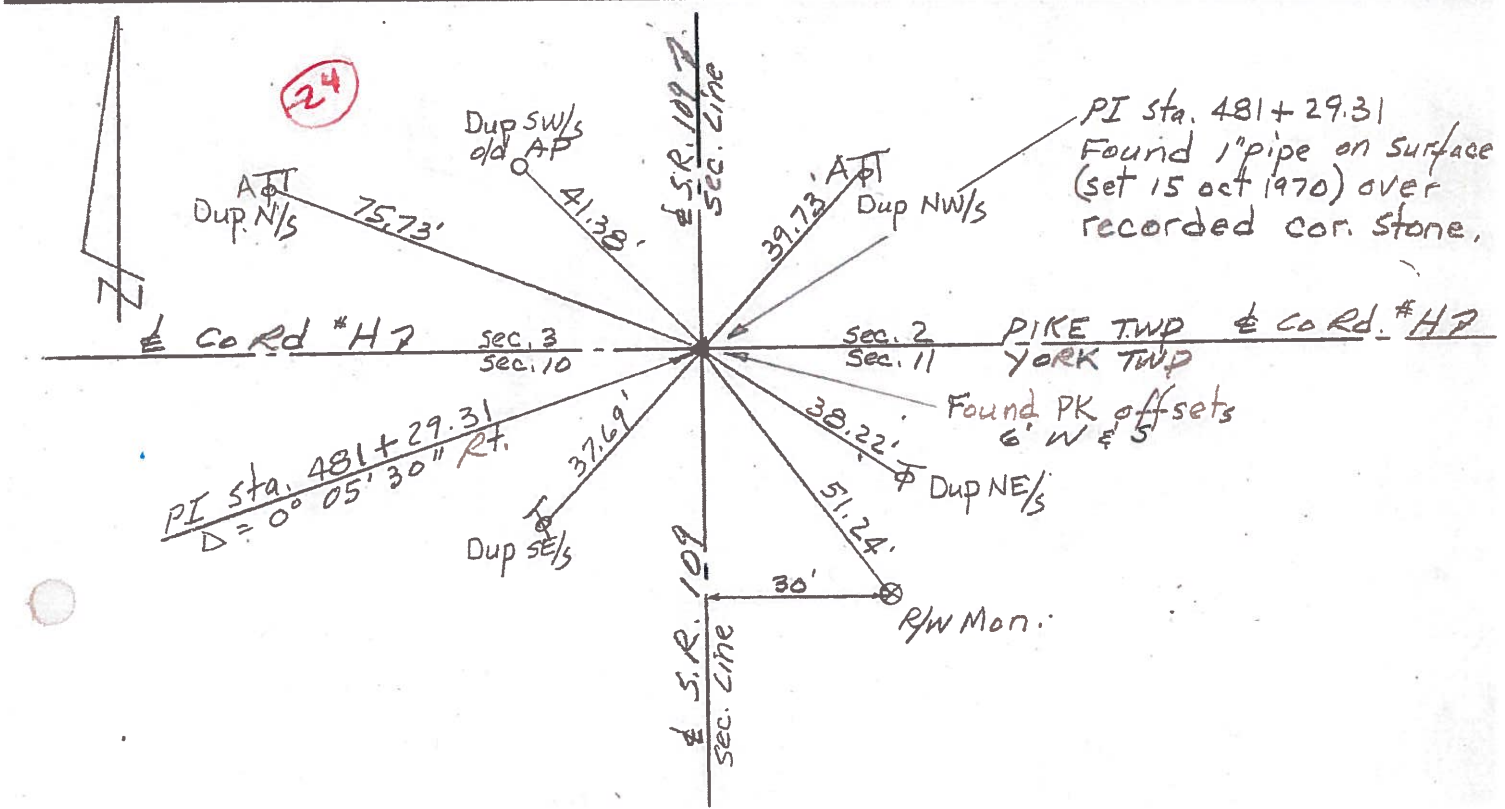 24
Dup SW/s
o/d AP
AT&T
Dup. N/s
75.73'
41.38'
℄ S.R. 109
Sec. Line
39.73'
Dup NW/s
PI sta. 481+29.31
Found 1" pipe on surface
(set 15 oct 1970) over
recorded cor. stone.
N
℄ Co Rd #H7
sec. 3
sec. 10
sec. 2
sec. 11
PIKE TWP
YORK TWP
℄ Co Rd. #H7
Found PK offsets
6' W & S
PI sta. 481+29.31
Δ = 0° 05' 30" Rt.
37.69'
Dup SE/s
38.22'
Dup NE/s
51.24'
30'
R/W Mon.
℄ S.R. 109
Sec. Line